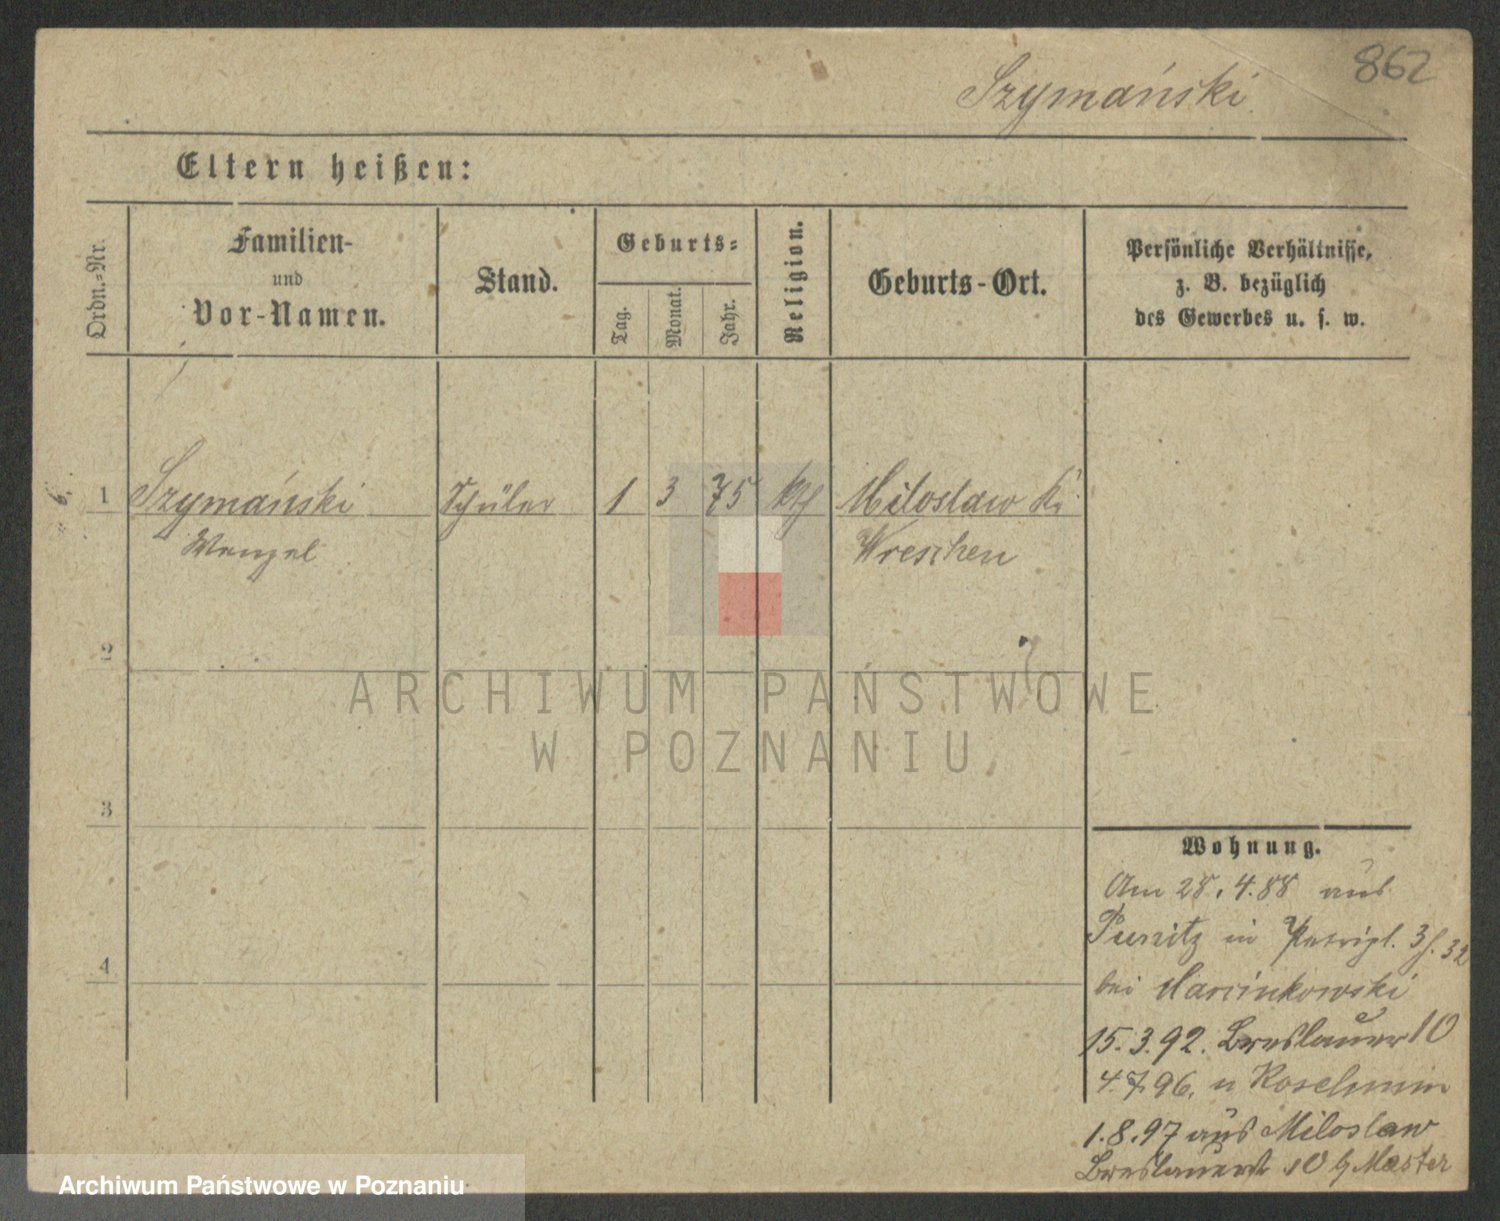 862
Szymański
Eltern heißen:
Ordn.-Nr.
Familien-
und
Vor-Namen.
Stand.
Geburts-
Tag.
Monat.
Jahr.
Religion.
Geburts-Ort.
Persönliche Verhältnisse,
z. B. bezüglich
des Gewerbes u. s. w.
1 Szymański Schüler 1 3 75 kth Miloslaw Kr.
Wenzel Wreschen
2
3
4
Wohnung.
Am 28.4.88 aus
Punitz in
bei Marcinkowski
15.3.92. Breslauer 10
4.7.96. n Koschmin
1.8.97 aus Miloslaw
10
ARCHIWUM PAŃSTWOWE
W POZNANIU
Archiwum Państwowe w Poznaniu